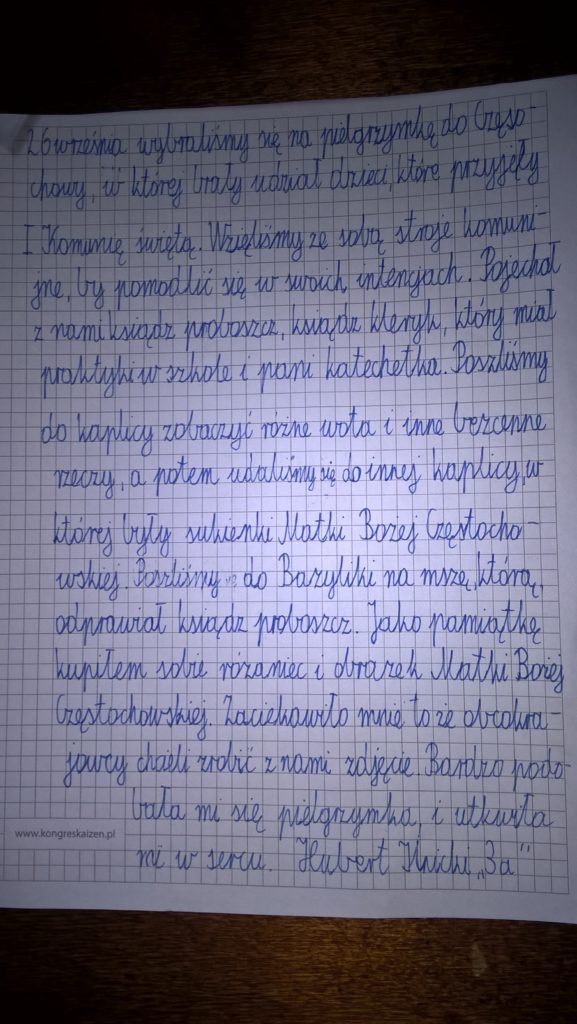 26 września wybraliśmy się na pielgrzymkę do Często-
chowy, w której brały udział dzieci, które przyjęły
I Komunię świętą. Wzięliśmy ze sobą stroje komuni-
jne, by pomodlić się w swoich intencjach. Pojechał
z nami ksiądz proboszcz, ksiądz kleryk, który miał
praktyki w szkole i pani katechetka. Poszliśmy
do kaplicy zobaczyć różne wota i inne bezcenne
rzeczy, a potem udaliśmy się do innej kaplicy, w
której były sukienki Matki Bożej Częstocho-
wskiej. Poszliśmy do Bazyliki na mszę, którą
odprawiał ksiądz proboszcz. Jako pamiątkę
kupiłem sobie różaniec i obrazek Matki Bożej
Częstochowskiej. Zaciekawiło mnie to że obcokra-
jowcy chcieli zrobić z nami zdjęcie. Bardzo podo-
bała mi się pielgrzymka, i utkwiła
www.kongreskaizen.pl
mi w sercu. Hubert "3a"